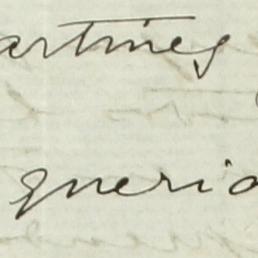 artines
querid